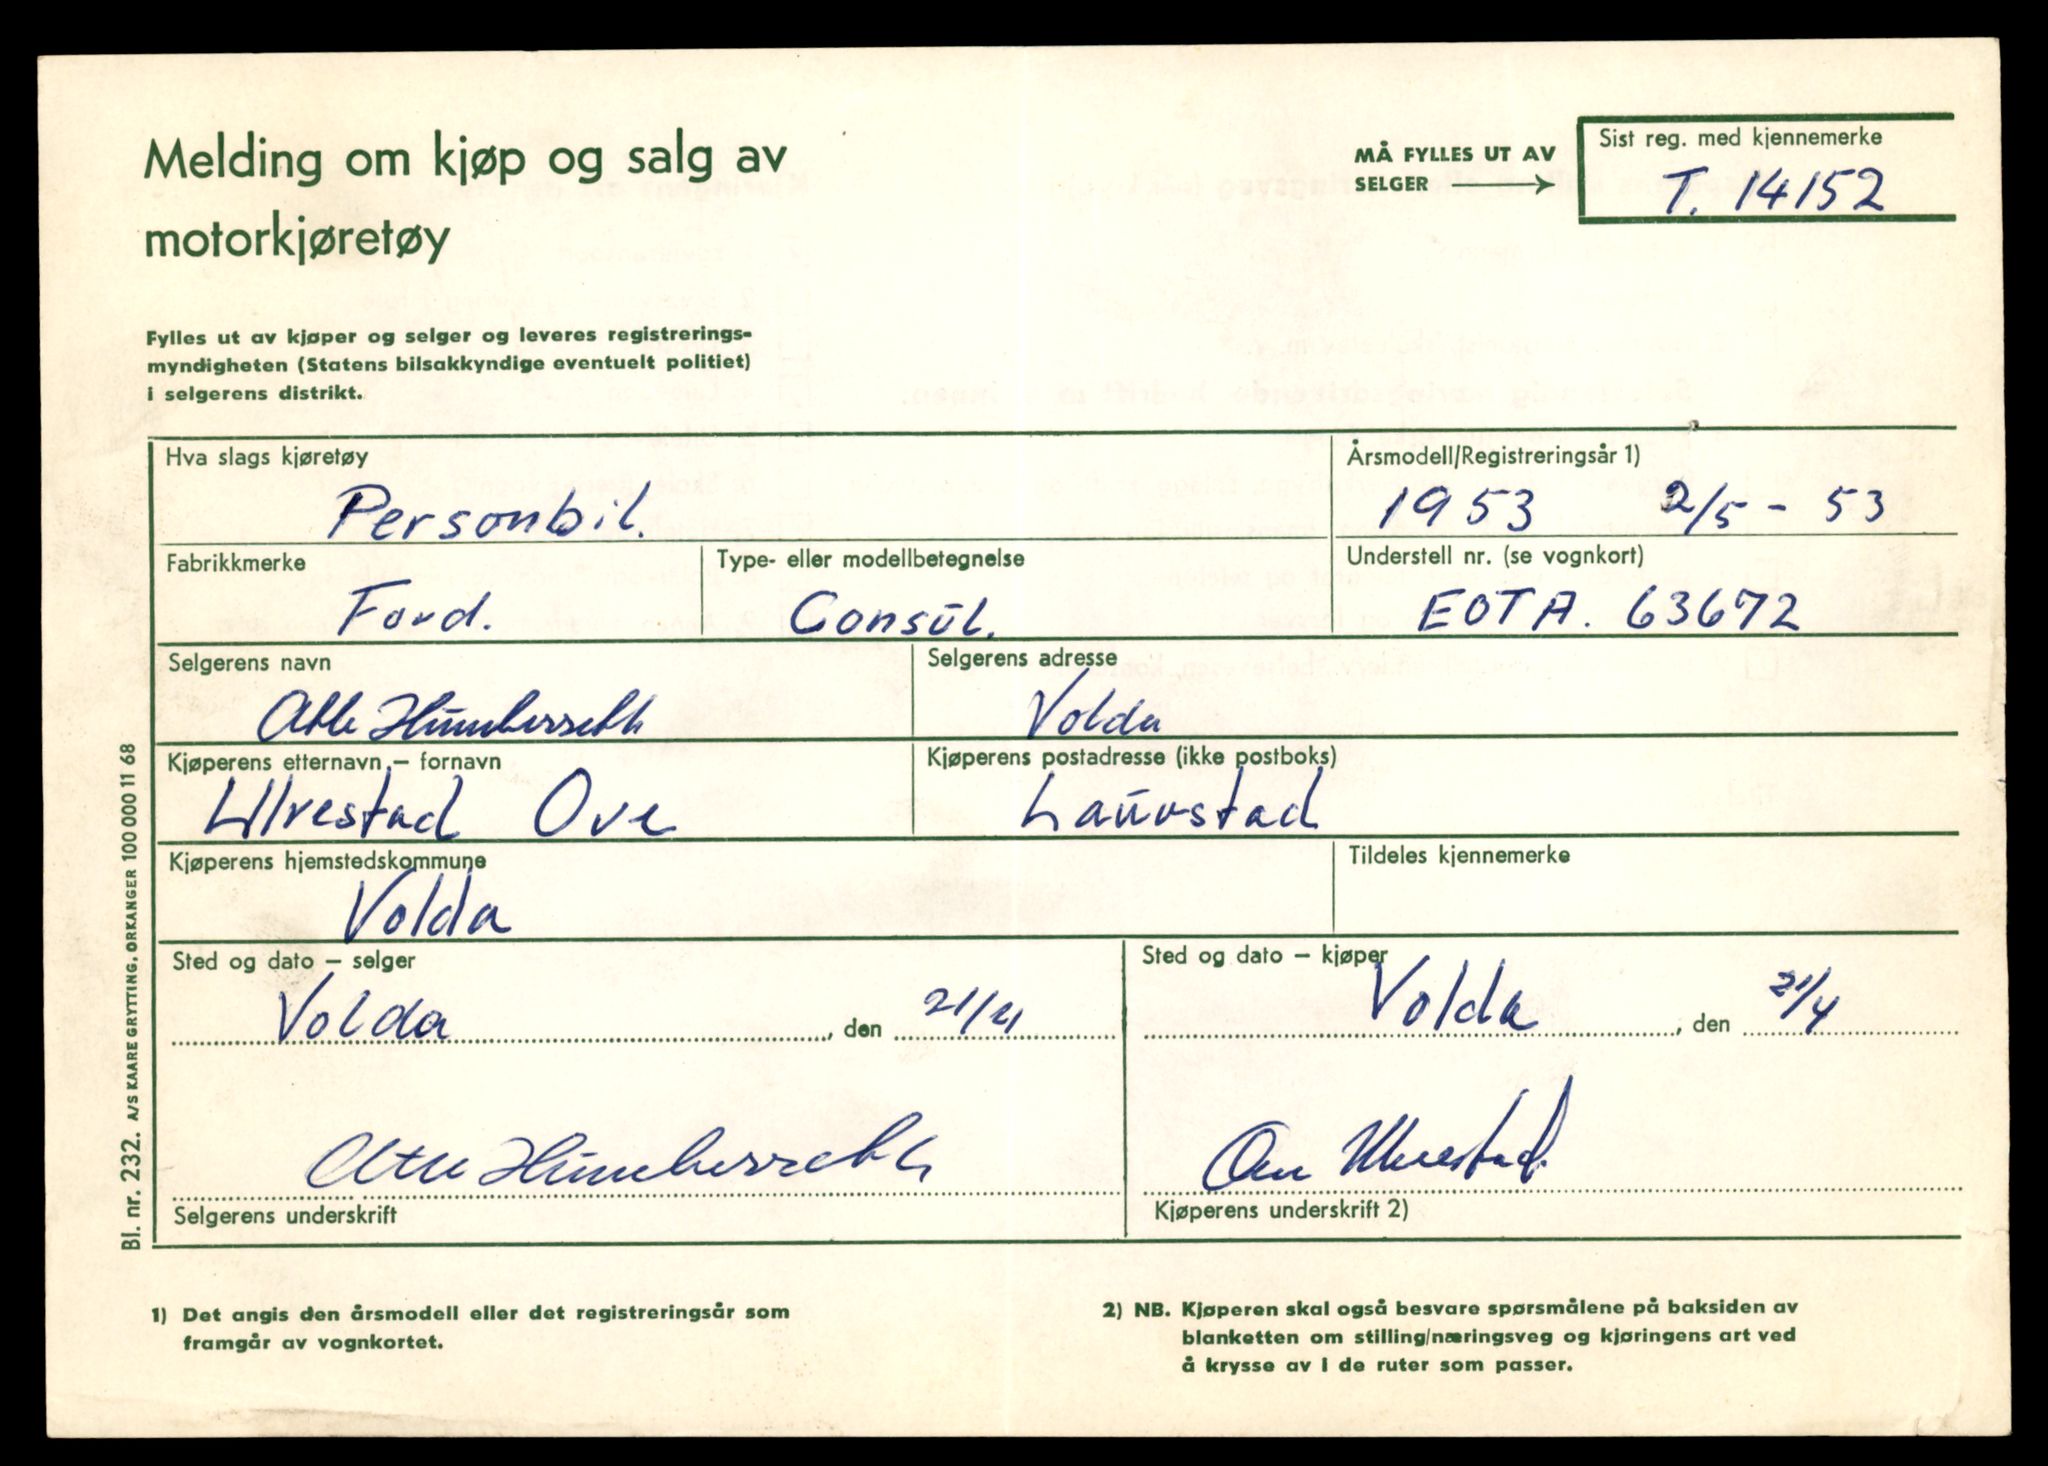 Melding om kjøp og salg av
motorkjøretøy
MÅ FYLLES UT AV
SELGER
Sist reg. med kjennemerke
T. 14152
Fylles ut av kjøper og selger og leveres registrerings-
myndigheten (Statens bilsakkyndige eventuelt politiet)
i selgerens distrikt.
Hva slags kjøretøy
Personbil.
Årsmodell/Registreringsår 1)
1953 2/5 - 53
Fabrikkmerke
Ford.
Type- eller modellbetegnelse
Consul.
Understell nr. (se vognkort)
EOTA. 63672
Selgerens navn
Atle Humberseth
Selgerens adresse
Volda
Kjøperens etternavn – fornavn
Ulvestad Ove
Kjøperens postadresse (ikke postboks)
Lauvstad
Kjøperens hjemstedskommune
Volda
Tildeles kjennemerke
Sted og dato – selger
Volda, den 21/4
Sted og dato – kjøper
Volda, den 21/4
Atle Humberseth
Selgerens underskrift
Ove Ulvestad.
Kjøperens underskrift 2)
Bl. nr. 232. A/S KAARE GRYTTING, ORKANGER 100 000 11 68
1) Det angis den årsmodell eller det registreringsår som
framgår av vognkortet.
2) NB. Kjøperen skal også besvare spørsmålene på baksiden av
blanketten om stilling/næringsveg og kjøringens art ved
å krysse av i de ruter som passer.